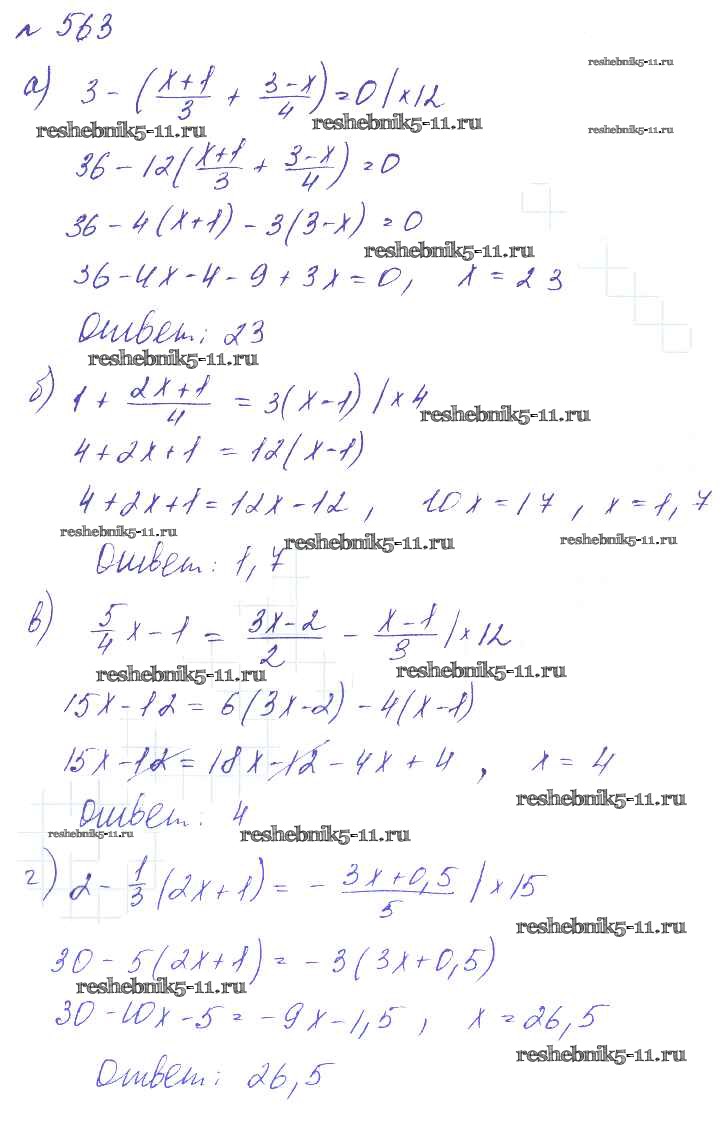 № 563
reshebnik5-11.ru
а) 3 - (x+1/3 + 3-x/4) = 0 | ×12
reshebnik5-11.ru reshebnik5-11.ru reshebnik5-11.ru
36 - 12(x+1/3 + 3-x/4) = 0
36 - 4(x+1) - 3(3-x) = 0
reshebnik5-11.ru
36 - 4x - 4 - 9 + 3x = 0, x = 23
Ответ: 23
reshebnik5-11.ru
б) 1 + 2x+1/4 = 3(x-1) | ×4
reshebnik5-11.ru
4 + 2x + 1 = 12(x-1)
4 + 2x + 1 = 12x - 12, 10x = 17, x = 1,7
reshebnik5-11.ru reshebnik5-11.ru reshebnik5-11.ru
Ответ: 1,7
в) 5/4 x - 1 = 3x-2/2 - x-1/3 | ×12
reshebnik5-11.ru reshebnik5-11.ru
15x - 12 = 6(3x-2) - 4(x-1)
15x - 12 = 18x - 12 - 4x + 4, x = 4
reshebnik5-11.ru
Ответ: 4
reshebnik5-11.ru reshebnik5-11.ru
г) 2 - 1/3 (2x+1) = - 3x+0,5/5 | ×15
reshebnik5-11.ru
30 - 5(2x+1) = -3(3x+0,5)
reshebnik5-11.ru
30 - 10x - 5 = -9x - 1,5, x = 26,5
reshebnik5-11.ru
Ответ: 26,5